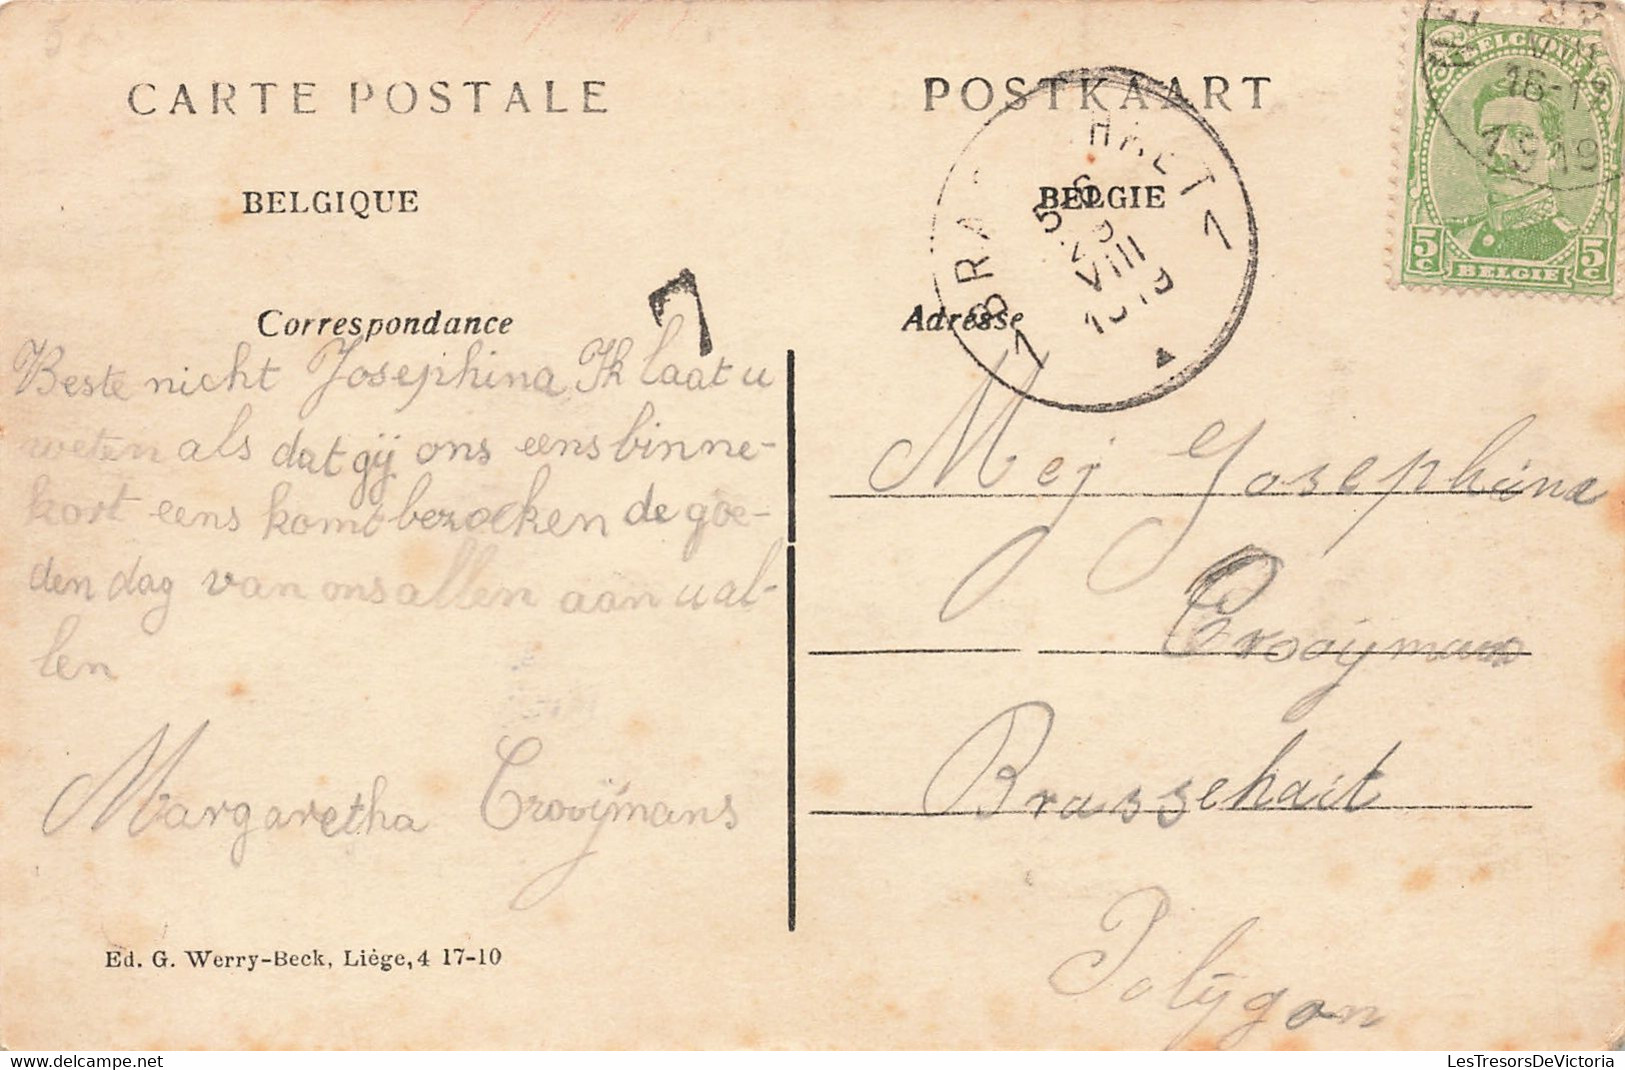 CARTE POSTALE
BELGIQUE
Correspondance
Beste nicht Josephina Ik laat u
weten als dat gij ons eens binne-
kort eens komt bezoeken de goe-
den dag van ons allen aan u al-
len
Margaretha Crooijmans
Ed. G. Werry-Beck, Liège, 4 17-10
POSTKAART
BELGIE
Adresse
Mej Josephina
Crooijmans
Brasschait
Polijgon
1 1
VIII
1919
BELGIQUE
16-17
1919
5c BELGIE 5c
7
LesTresorsDeVictoria